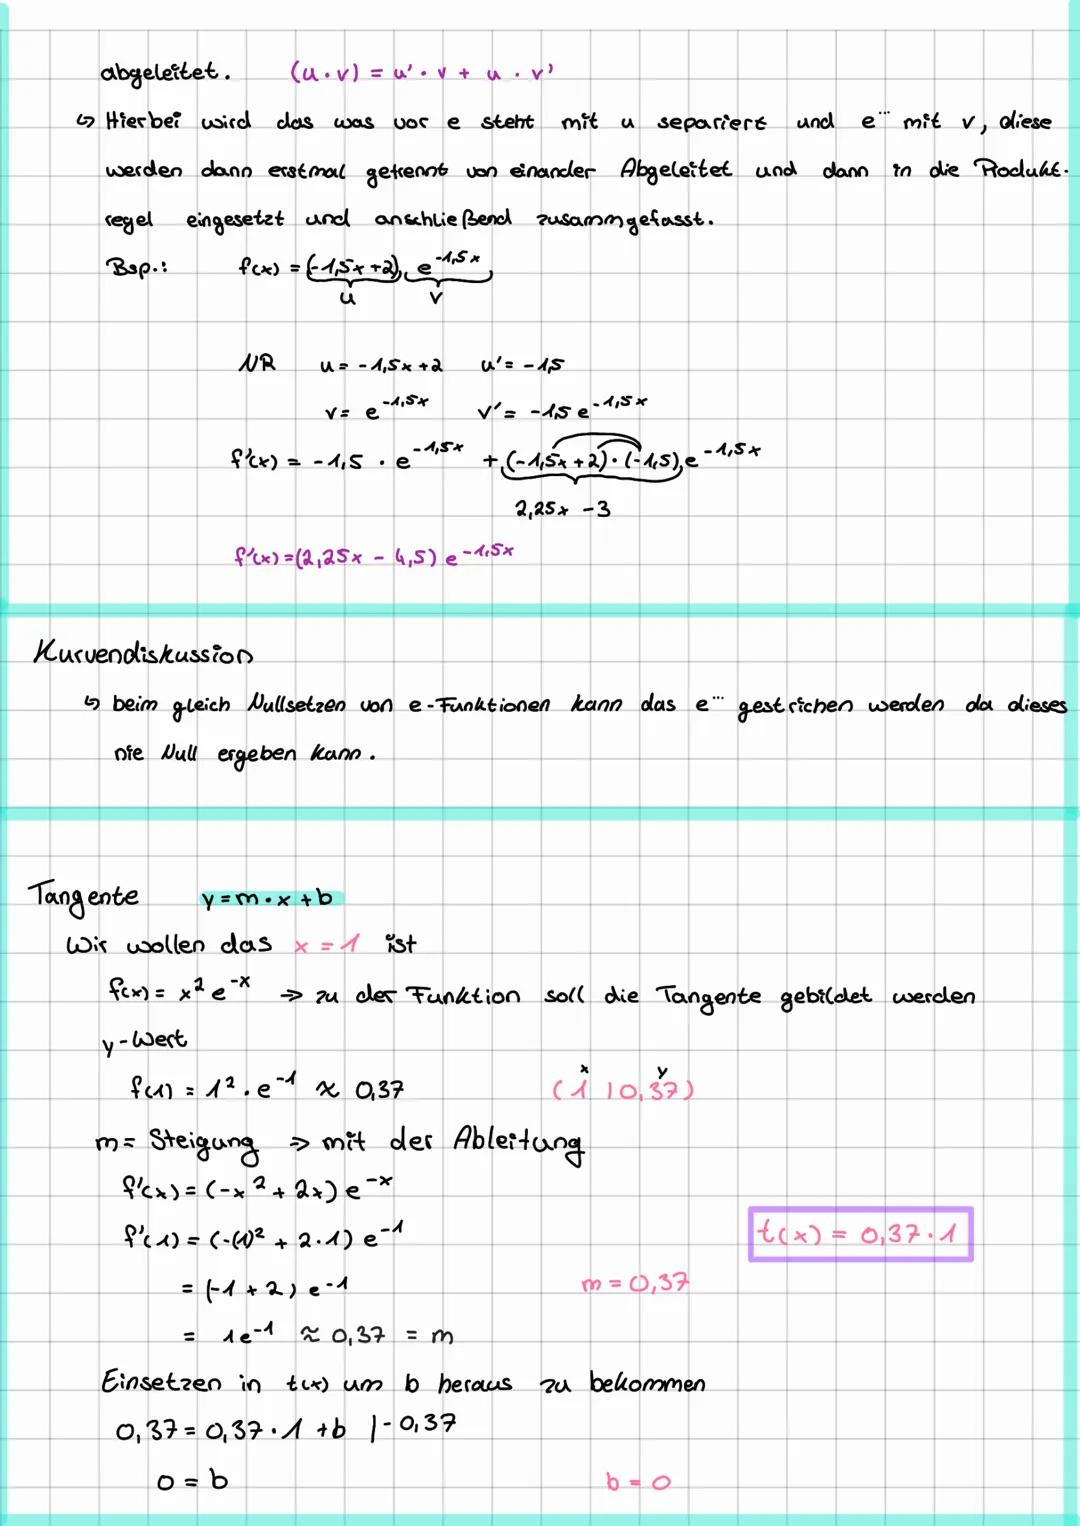 abgeleitet. (u·v) = u'·v + u·v'
↳ Hierbei wird das was vor e steht mit u separiert und e¨ mit v, diese
werden dann erstmal getrennt von einander Abgeleitet und dann in die Produkt-
regel eingesetzt und anschließend zusammgefasst.
Bsp.: f(x) = (-1,5x+2) e^-1,5x
u v
NR u = -1,5x+2 u' = -1,5
v = e^-1,5x v' = -1,5 e^-1,5x
f'(x) = -1,5 · e^-1,5x + (-1,5x+2)·(-1,5) e^-1,5x
2,25x -3
f'(x) = (2,25x - 4,5) e^-1,5x
Kurvendiskussion
↳ beim gleich Nullsetzen von e-Funktionen kann das e^... gestrichen werden da dieses
nie Null ergeben kann.
Tangente y=m·x+b
Wir wollen das x=1 ist
f(x) = x² e^-x ⇒ zu der Funktion soll die Tangente gebildet werden
y-Wert
x y
f(1) = 1²·e^-1 ≈ 0,37 (1 | 0,37)
m = Steigung ⇒ mit der Ableitung
f'(x) = (-x²+2x) e^-x
f'(1) = (-(1)² + 2·1) e^-1 t(x) = 0,37·1
= (-1+2) e^-1 m = 0,37
= 1e^-1 ≈ 0,37 = m
Einsetzen in t(x) um b heraus zu bekommen
0,37 = 0,37·1 +b |-0,37
0 = b b = 0